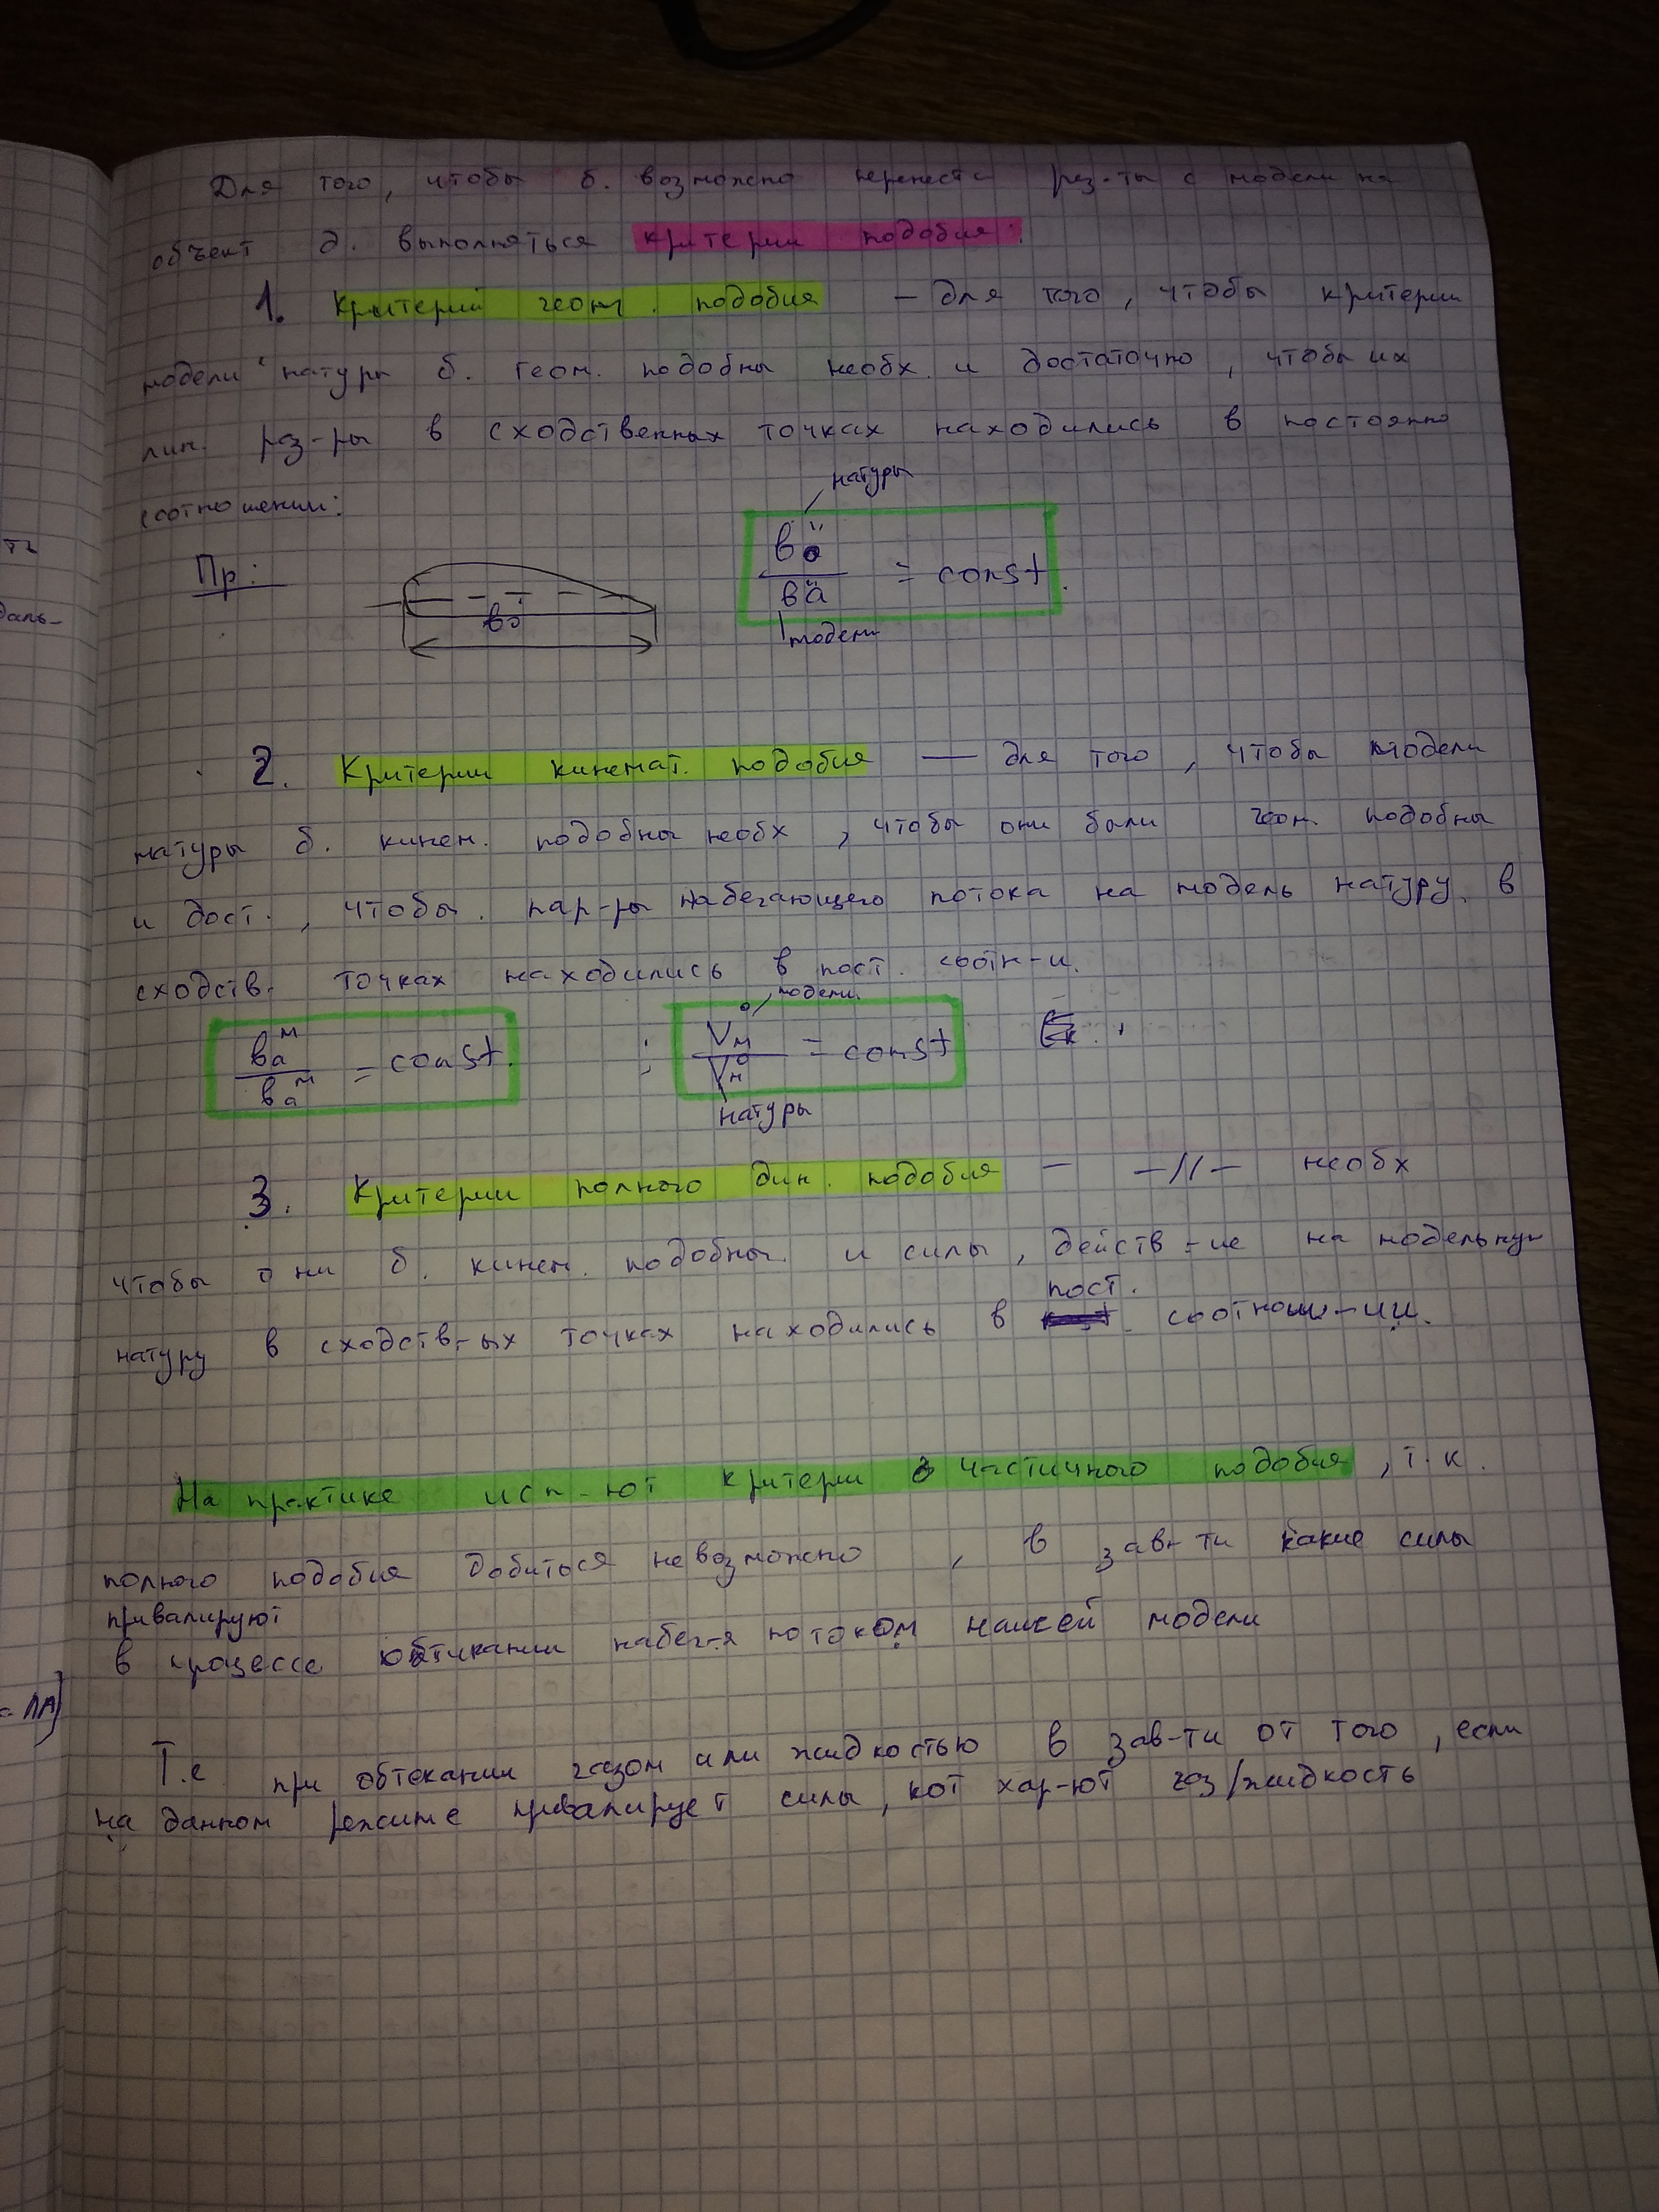 Для того, чтобы б. возможно перенести рез-ты с модели на
объект д. выполняться критерии подобия:
1. Критерий геом. подобия – для того, чтобы критерии
модели натуры б. геом. подобны необх. и достаточно, чтобы их
лин. раз-ры в сходственных точках находились в постоянно
соотношении:
натуры
Пр:
= const.
модели
2. Критерии кинемат. подобия — для того, чтобы модели
натуры б. кинем. подобны необх, чтобы они были геом. подобны
и дост., чтобы. пар-ры набегающего потока на модель натуру. в
сходств. точках находились в пост. соотн-и.
модели
= const. ; = const
натуры
3. Критерии полного дин. подобия – –//– необх
чтобы они б. кинем. подобны и силы, действ-ие на модельную
пост.
натуру в сходств-ых точках находились в соотнош-ии.
На практике исп-ют критерии частичного подобия, т.к.
полного подобия добиться невозможно, в зав-ти какие силы
привалируют
в процессе обтикании набег-я потоком нашей модели
Т.е при обтекании газом или жидкостью в зав-ти от того, если
на данном режиме привалирует силы, кот хар-ют газ/жидкость
ть
даль-
ЛА]